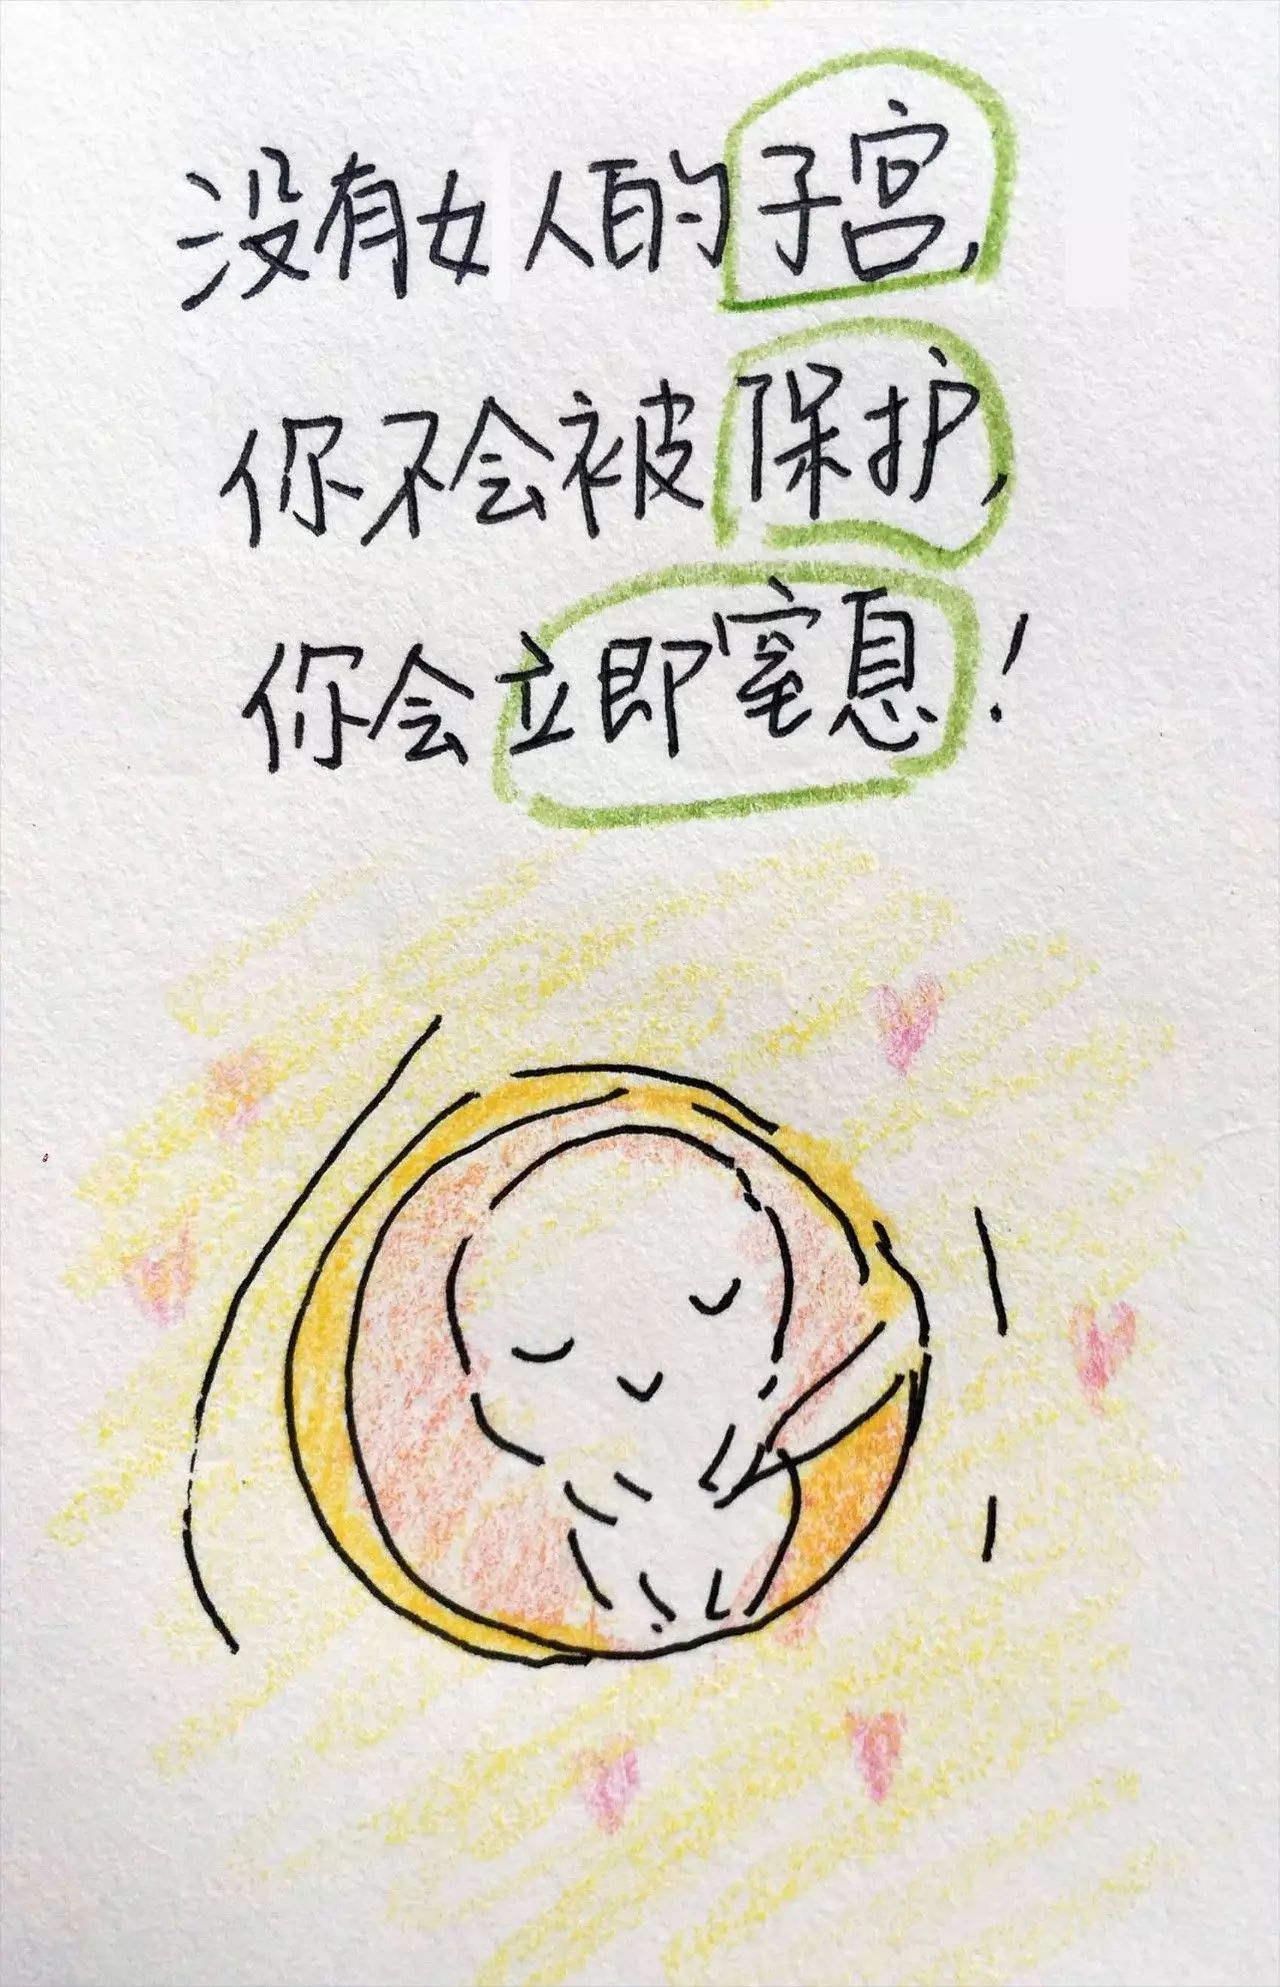 没有女人的子宫,
你不会被保护,
你会立即窒息!